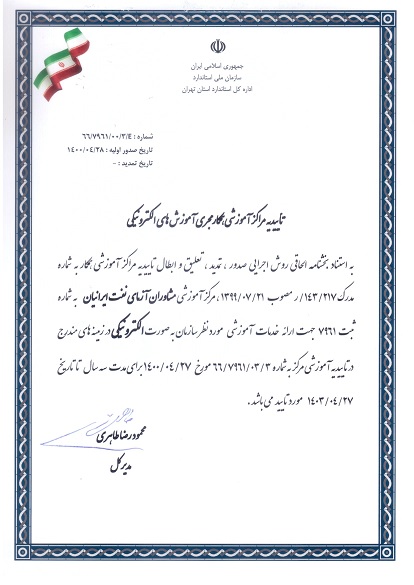 جمهوری اسلامی ایران
سازمان ملی استاندارد
اداره کل استاندارد استان تهران
شماره : ۶۶/۷۹۶۱/۰۰/۳/E
تاریخ صدور اولیه : ۱۴۰۰/۰۴/۲۸
تاریخ تمدید : -
تاییدیه مراکز آموزشی همکار مجری آموزش های الکترونیکی
به استناد بخشنامه الحاقی روش اجرایی صدور ، تمدید ، تعلیق و ابطال تاییدیه مراکز آموزشی همکار به شماره
مدرک ۱۴۳/۲۱۷/ر مصوب ۱۳۹۹/۰۷/۲۱، مرکز آموزشی مشاوران آزمای نفت ایرانیان به شماره
ثبت ۷۹۶۱ جهت ارائه خدمات آموزشی مورد نظر سازمان به صورت الکترونیکی در زمینه های مندرج
در تاییدیه آموزشی مرکز به شماره ۶۶/۷۹۶۱/۰۳/۳ مورخ ۱۴۰۰/۰۴/۲۷ برای مدت سه سال تا تاریخ
۱۴۰۳/۰۴/۲۷ مورد تایید می باشد.
محمودرضا طاهری
مدیرکل